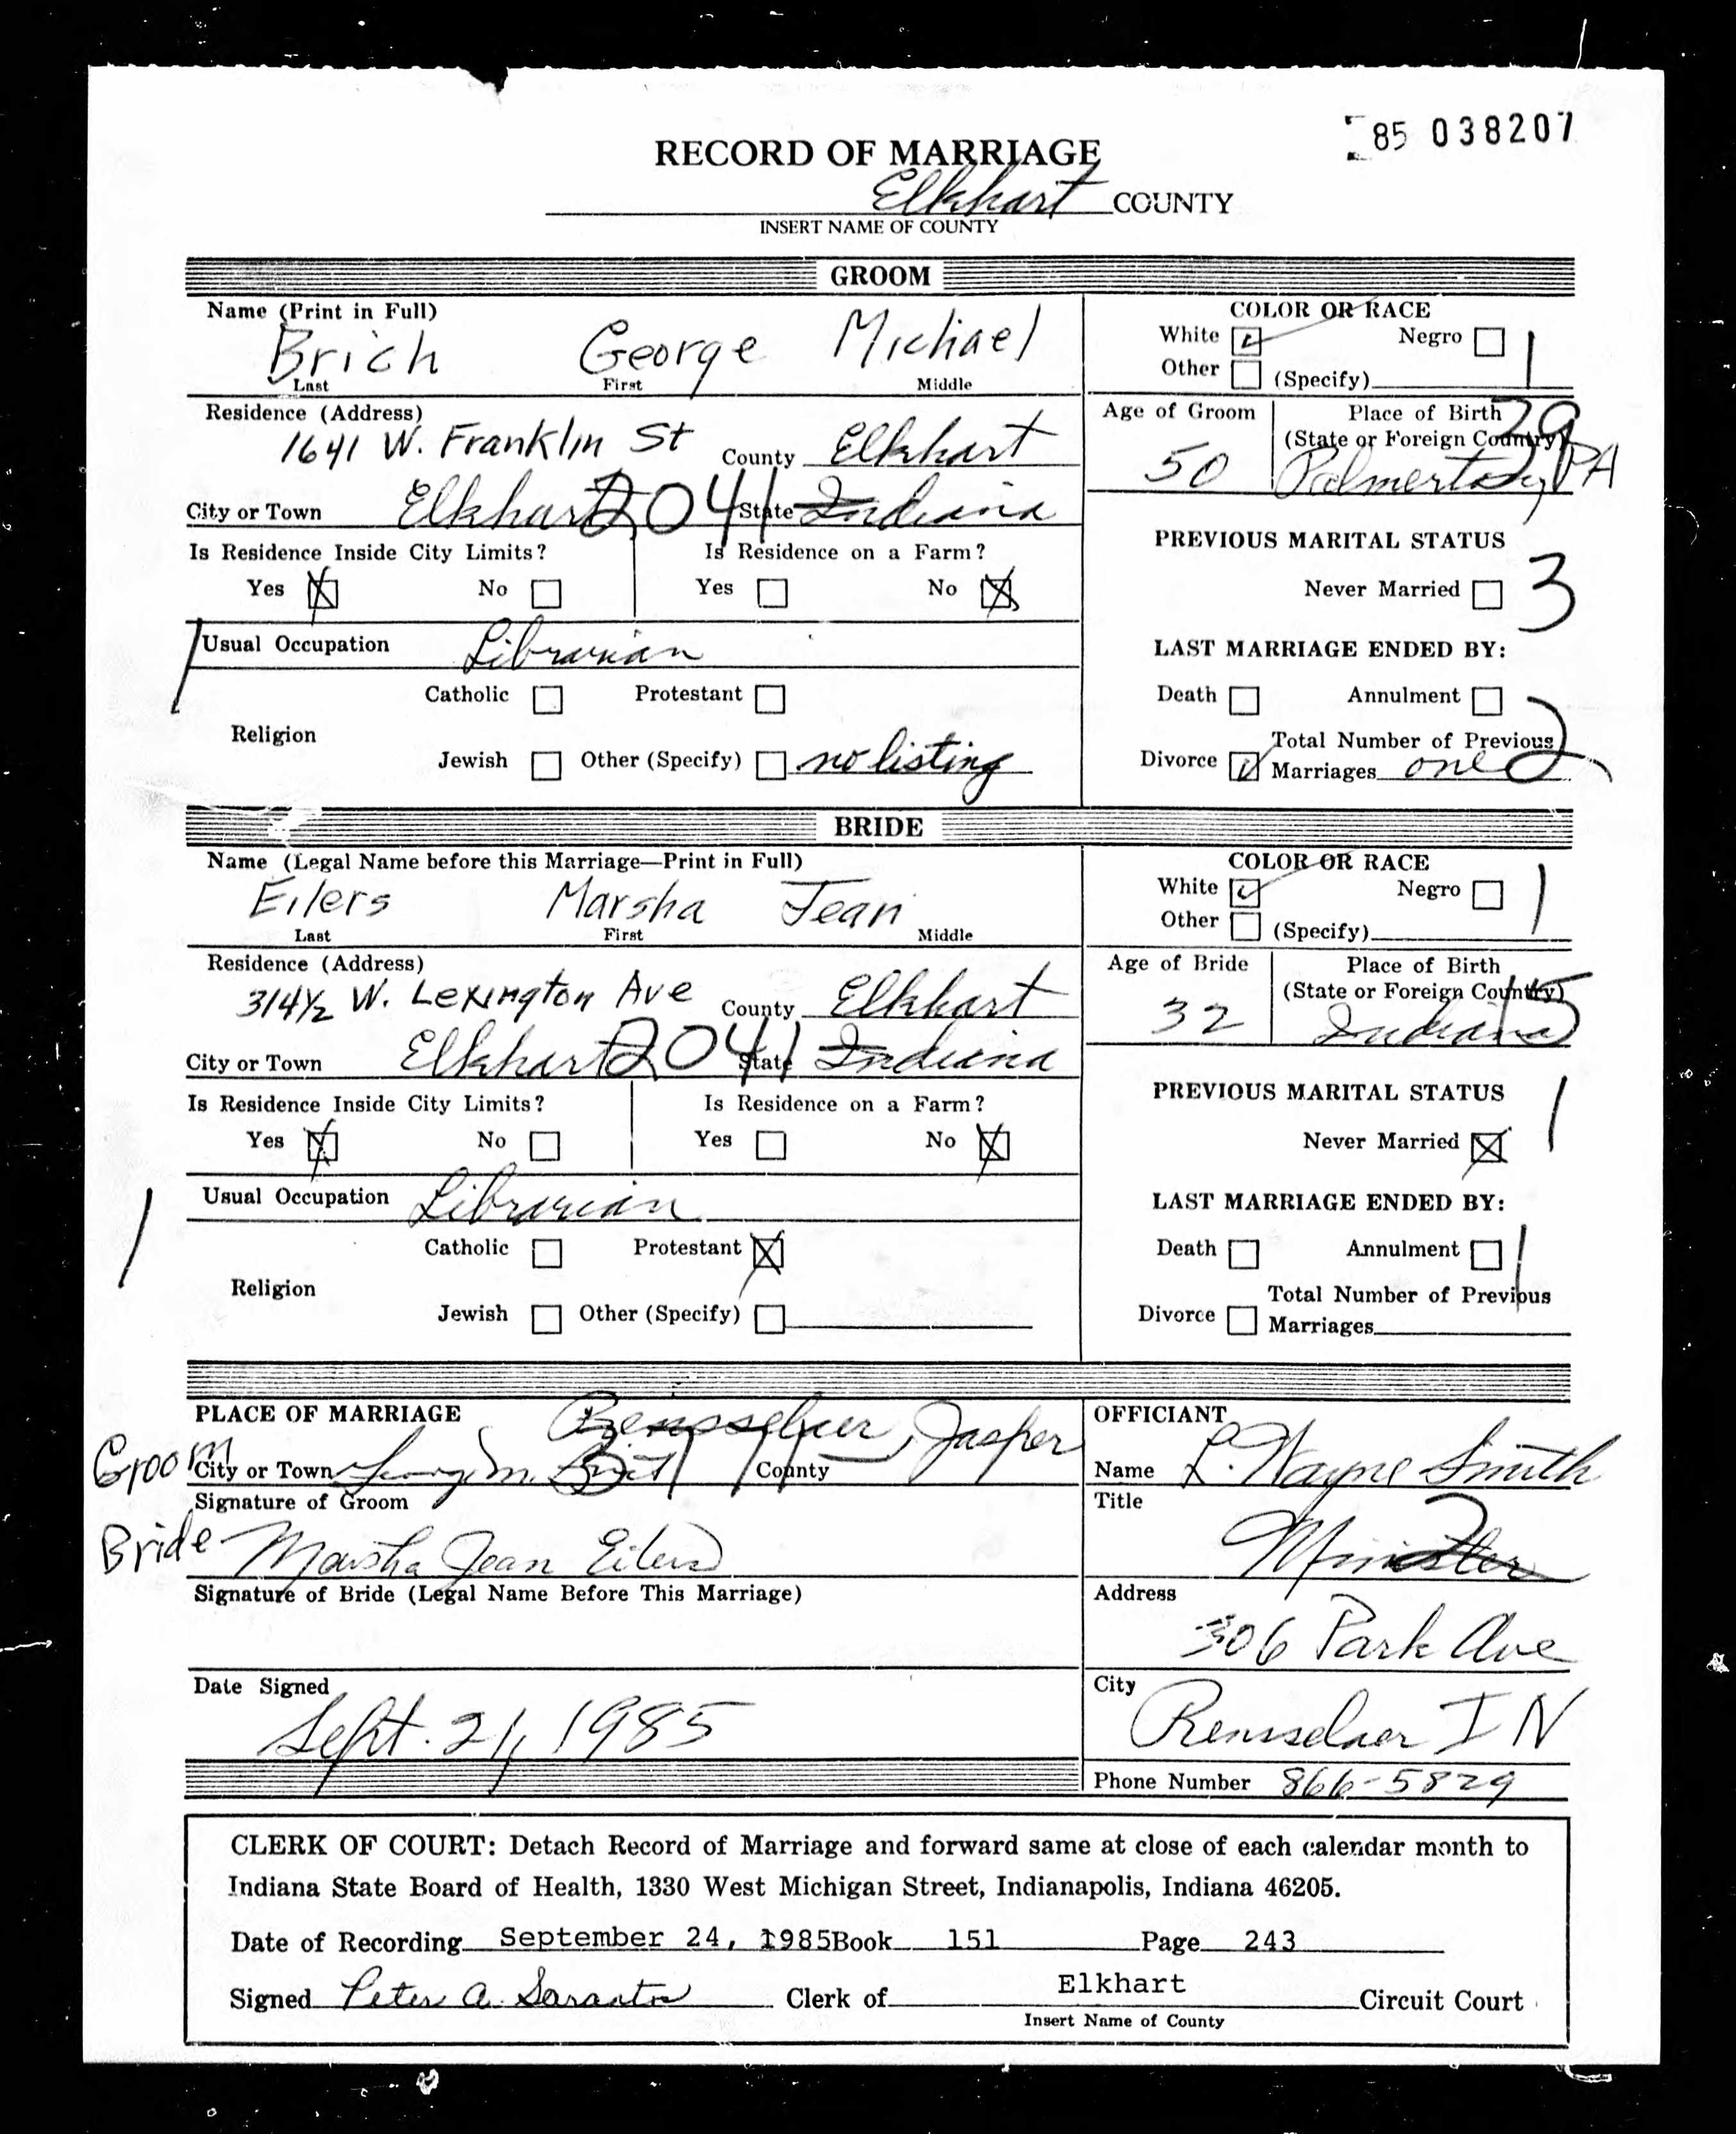 85 038207
RECORD OF MARRIAGE
Elkhart COUNTY
INSERT NAME OF COUNTY
GROOM
Name (Print in Full)
Brich George Michael
Last First Middle
COLOR OR RACE
White ☑ Negro ☐ 1
Other ☐ (Specify)
Residence (Address)
1641 W. Franklin St County Elkhart
City or Town Elkhart 2041 State Indiana
Age of Groom
50
Place of Birth 39
(State or Foreign Country)
Palmerton, PA
Is Residence Inside City Limits?
Yes ☒ No ☐
Is Residence on a Farm?
Yes ☐ No ☒
PREVIOUS MARITAL STATUS
Never Married ☐ 3
1 Usual Occupation Librarian
LAST MARRIAGE ENDED BY:
Death ☐ Annulment ☐
Divorce ☑ Total Number of Previous
Marriages one 2
Religion
Catholic ☐ Protestant ☐
Jewish ☐ Other (Specify) ☐ no listing
BRIDE
Name (Legal Name before this Marriage—Print in Full)
Eilers Marsha Jean
Last First Middle
COLOR OR RACE
White ☑ Negro ☐ 1
Other ☐ (Specify)
Residence (Address)
314½ W. Lexington Ave County Elkhart
City or Town Elkhart 2041 State Indiana
Age of Bride
32
Place of Birth
(State or Foreign Country) 15
Indiana
Is Residence Inside City Limits?
Yes ☒ No ☐
Is Residence on a Farm?
Yes ☐ No ☒
PREVIOUS MARITAL STATUS
Never Married ☒ 1
1 Usual Occupation Librarian
LAST MARRIAGE ENDED BY:
Death ☐ Annulment ☐ 1
Divorce ☐ Total Number of Previous
Marriages
Religion
Catholic ☐ Protestant ☒
Jewish ☐ Other (Specify) ☐
PLACE OF MARRIAGE Rensselaer, Jasper
Groom City or Town George M. Brich County
Signature of Groom
Bride Marsha Jean Eilers
Signature of Bride (Legal Name Before This Marriage)
Date Signed
Sept. 21, 1985
OFFICIANT
Name L. Wayne Smith
Title
Minister 2
Address
306 Park Ave
City
Rensselaer IN
Phone Number 866-5829
CLERK OF COURT: Detach Record of Marriage and forward same at close of each calendar month to
Indiana State Board of Health, 1330 West Michigan Street, Indianapolis, Indiana 46205.
Date of Recording September 24, 1985 Book 151 Page 243
Signed Peter A. Sarantos Clerk of Elkhart Circuit Court
Insert Name of County